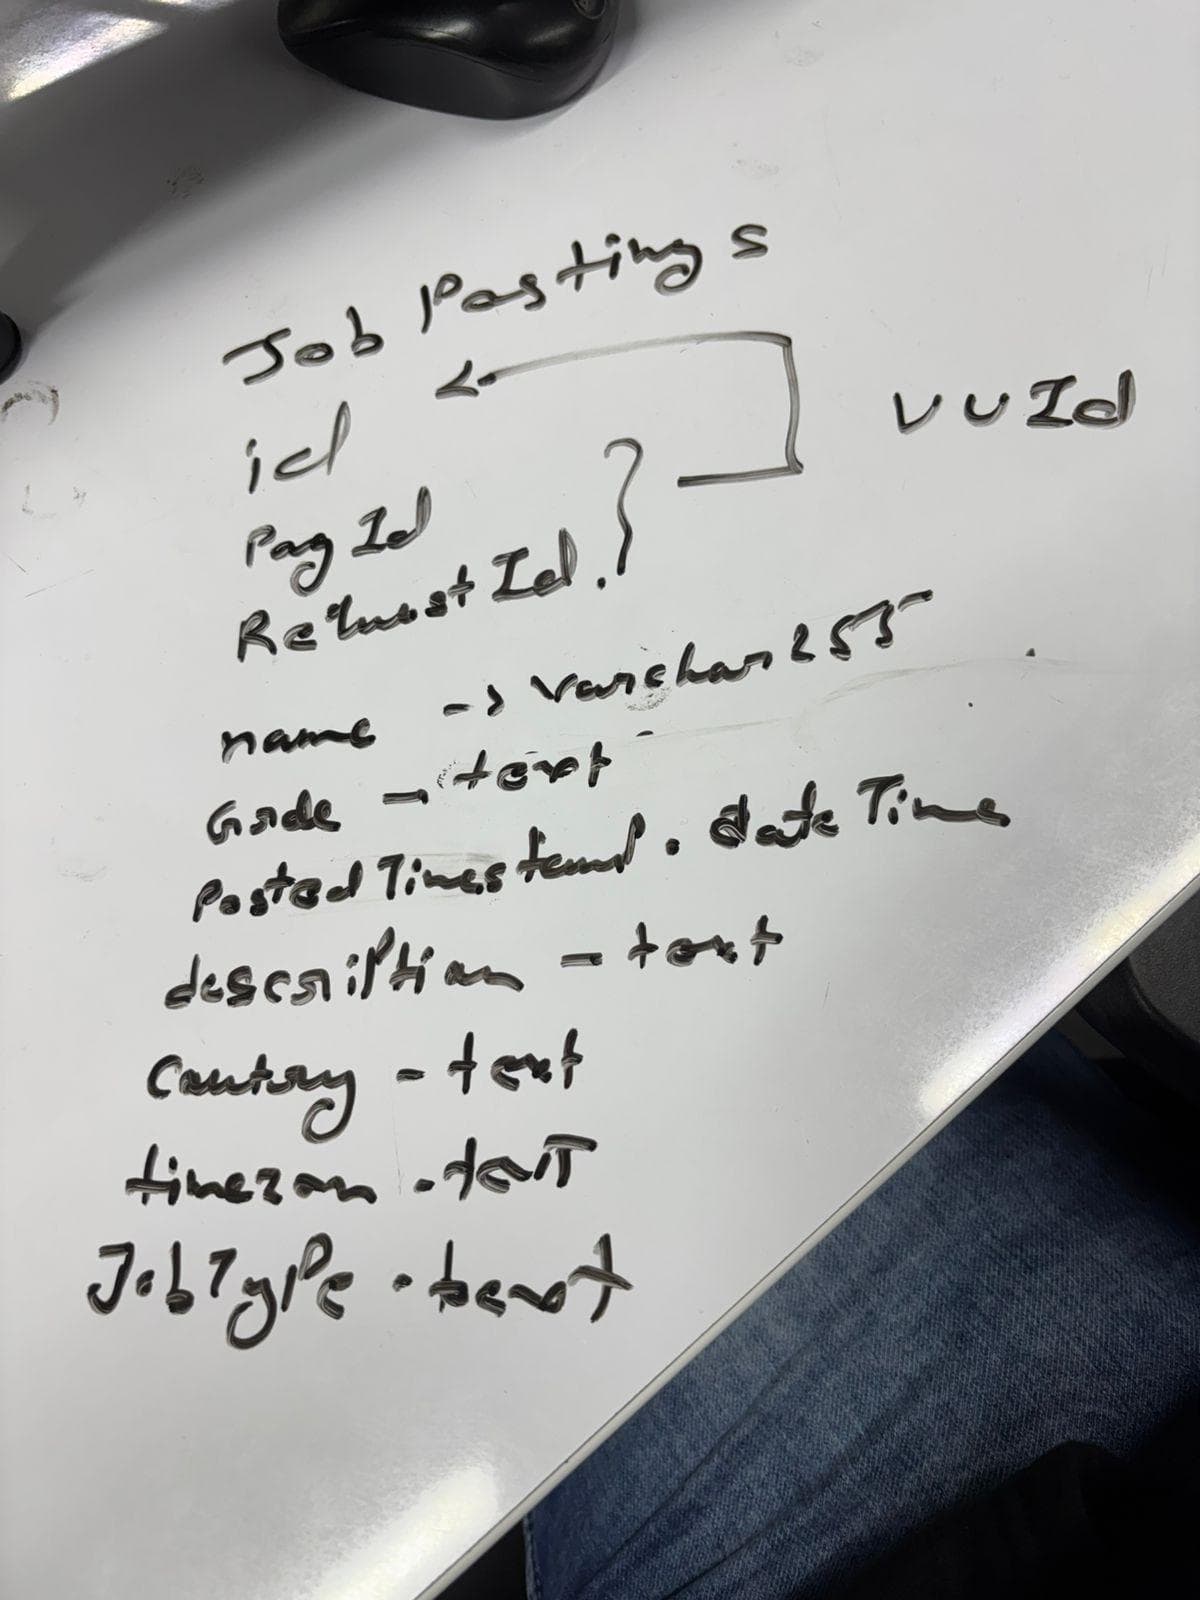 Job Postings
id
UUId
PagId
RequestId.
name -> Varchar 255
Grade - text
Posted Timestamp . date Time
description - text
Country - text
timezon . text
JobType . text